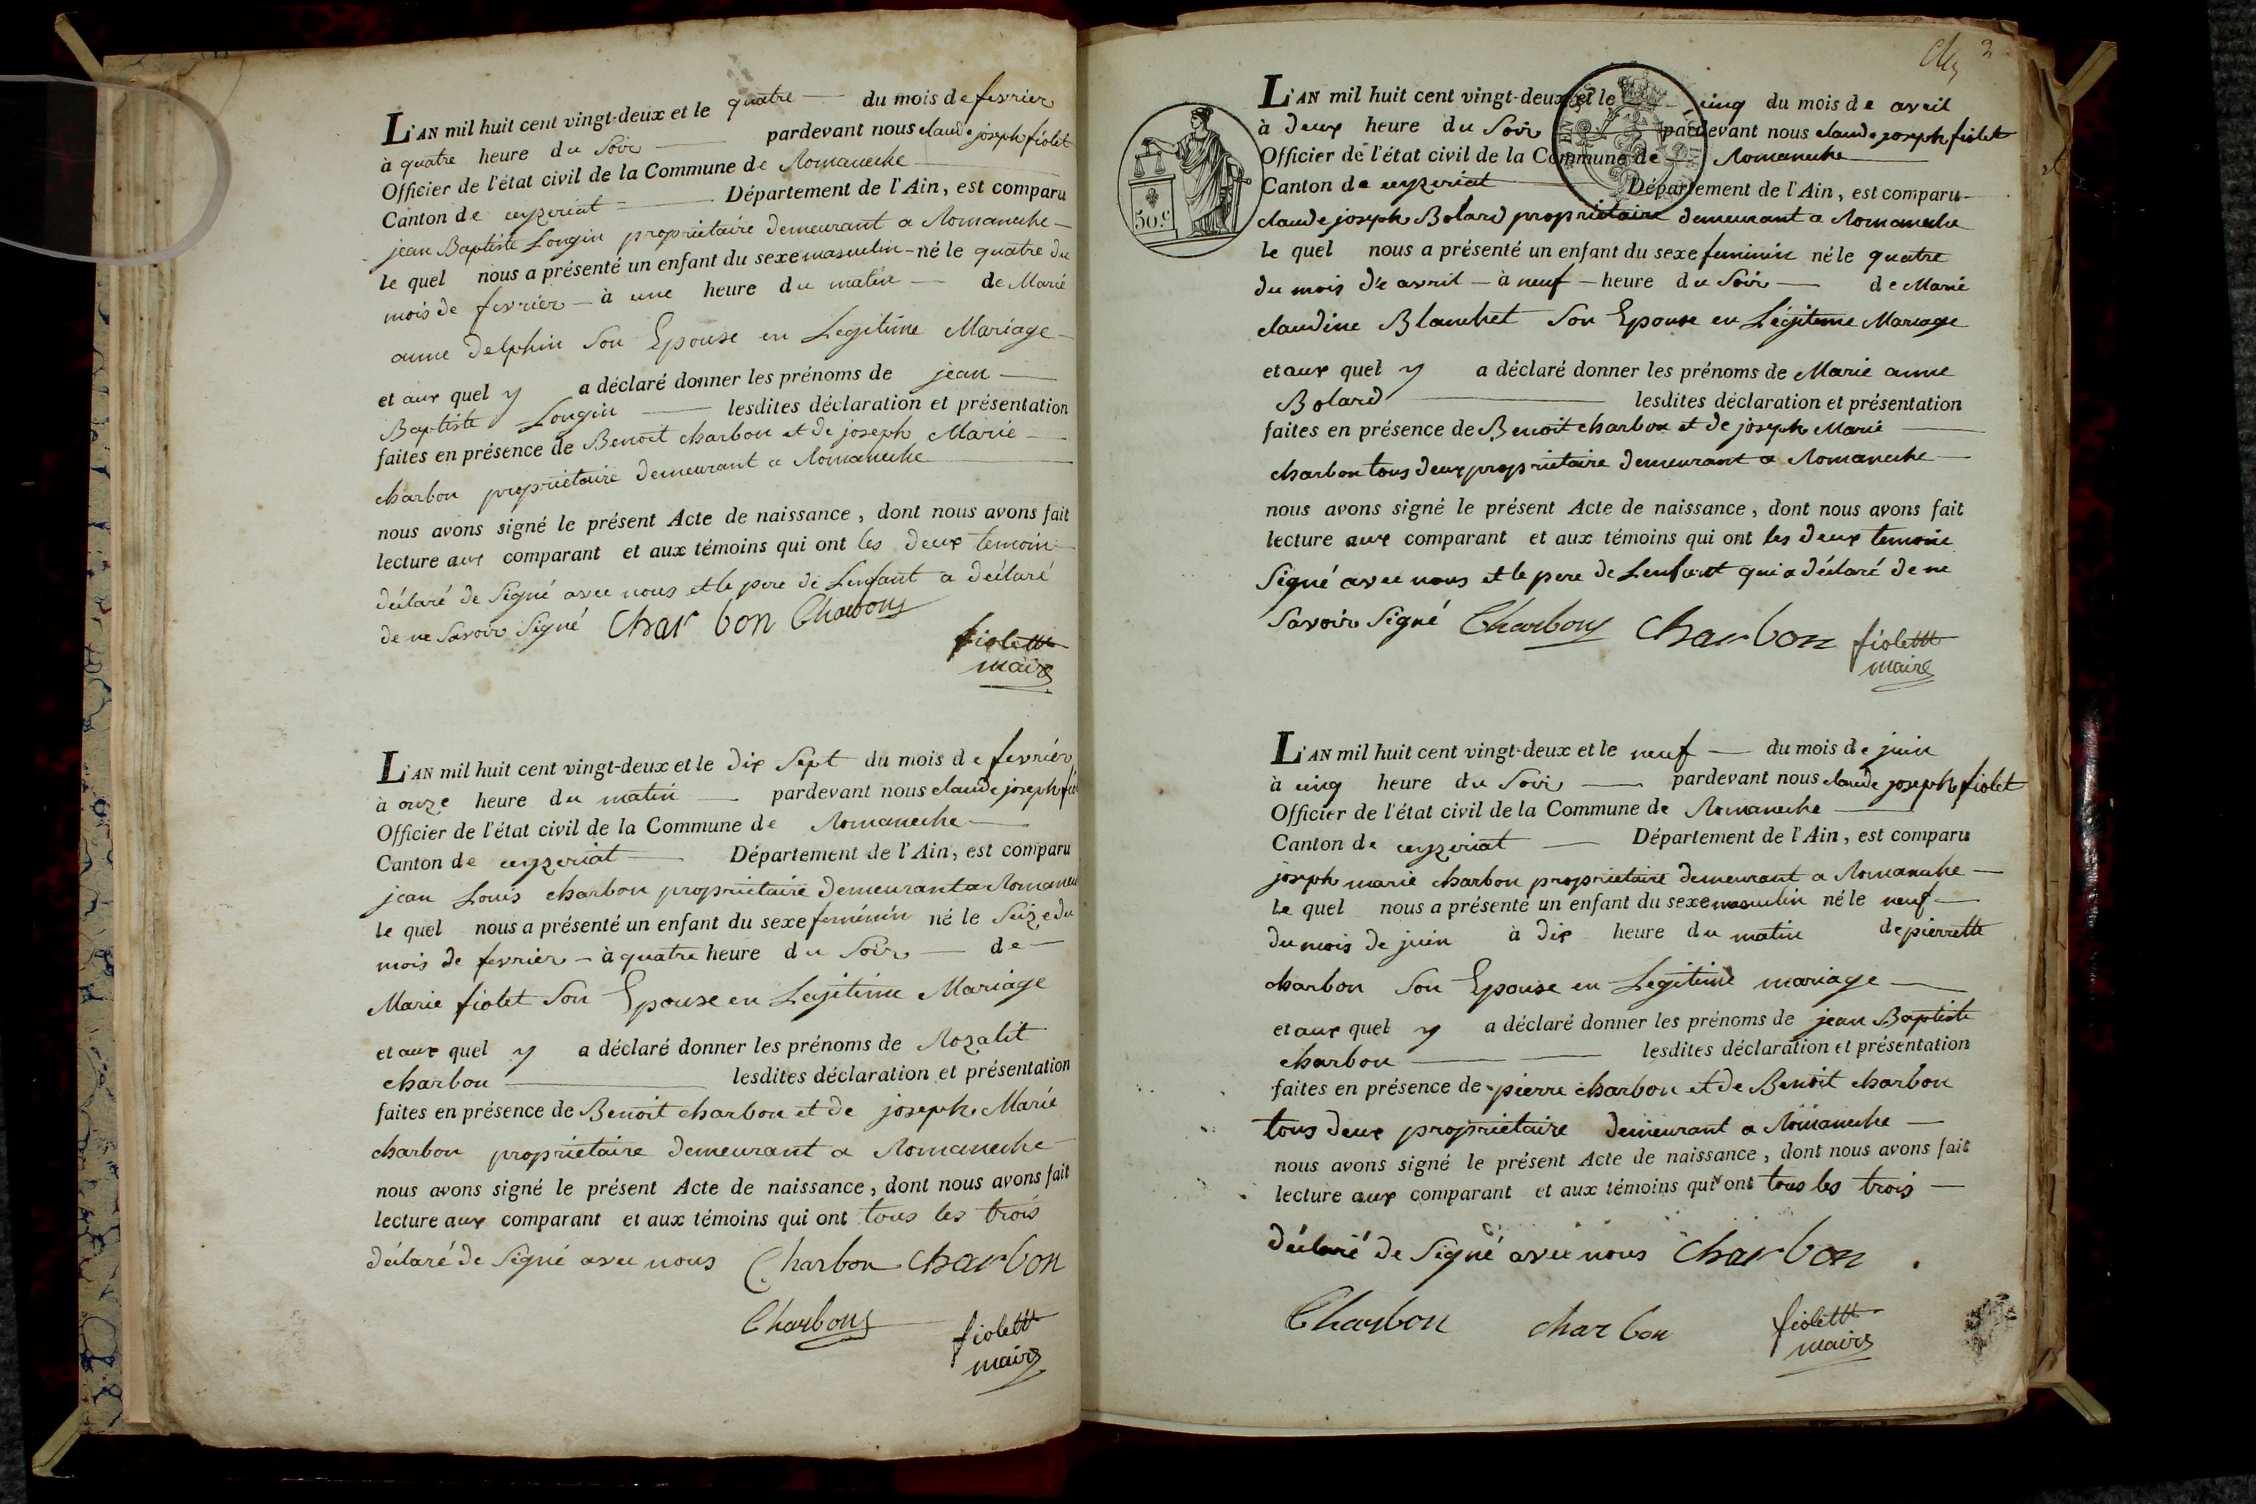 L'AN mil huit cent vingt-deux et le quatre — du mois de fevrier
à quatre heure du Soir — pardevant nous claude joseph fiolet
Officier de l'état civil de la Commune de Romaneche
Canton de ceyzeriat — Département de l'Ain, est comparu
jean Baptiste Longin proprietaire demeurant a Romaneche —
le quel nous a présenté un enfant du sexe masculin - né le quatre du
mois de fevrier — à une heure du matin — de Marie
anne Delphin Son Epouse en Legitime Mariage —
et aux quel y a déclaré donner les prénoms de jean —
Baptiste Longin — lesdites déclaration et présentation
faites en présence de Benoit charbon et de joseph Marie —
charbon proprietaire demeurant a Romaneche
nous avons signé le présent Acte de naissance, dont nous avons fait
lecture aux comparant et aux témoins qui ont les deux temoin
déclaré de Signé avec nous et le pere de Lenfant a déclaré
de ne Savoir Signé Charbon Charbon
fiolett
maire
L'AN mil huit cent vingt-deux et le dix Sept du mois de fevrier
à onze heure du matin — pardevant nous claude joseph
Officier de l'état civil de la Commune de Romaneche —
Canton de ceyzeriat — Département de l'Ain, est comparu
jean Louis charbon proprietaire demeurant a
le quel nous a présenté un enfant du sexe feminin né le Seize du
mois de fevrier — à quatre heure du Soir — de —
Marie fiolet Son Epouse en Legitime Mariage
et aux quel y a déclaré donner les prénoms de Rozalit
charbon — lesdites déclaration et présentation
faites en présence de Benoit charbon et de joseph Marie
charbon proprietaire demeurant a Romaneche
nous avons signé le présent Acte de naissance, dont nous avons fait
lecture aux comparant et aux témoins qui ont tous les trois
déclaré de Signé avec nous Charbon Charbon
Charbon
fiolett
maire
2
L'AN mil huit cent vingt-deux et le cinq du mois de avril
à deux heure du Soir pardevant nous claude joseph fiolet
Officier de l'état civil de la Commune de Romaneche
Canton de ceyzeriat Département de l'Ain, est comparu -
50 c.
claude joseph Bolard proprietaire demeurant a Romaneche
le quel nous a présenté un enfant du sexe feminin né le quatre
du mois de avril — à neuf — heure du Soir — de Marie
claudine Blanchet Son Epouse en Légiteme Mariage
et aux quel y a déclaré donner les prénoms de Marie anne
Bolard — lesdites déclaration et présentation
faites en présence de Benoit charbon et de joseph Marie —
charbon tous deux proprietaire demeurant a Romaneche —
nous avons signé le présent Acte de naissance, dont nous avons fait
lecture aux comparant et aux témoins qui ont les deux temoin
Signé avec nous et le pere de Lenfant qui a déclaré de ne
Savoir Signé Charbon Charbon fiolett
maire
L'AN mil huit cent vingt-deux et le neuf — du mois de juin
à cinq heure du Soir — pardevant nous claude joseph fiolet
Officier de l'état civil de la Commune de Romaneche —
Canton de ceyzeriat — Département de l'Ain, est comparu
joseph marie charbon proprietaire demeurant a Romaneche —
le quel nous a présenté un enfant du sexe masculin né le neuf —
du mois de juin à dix heure du matin de pierrette
charbon Son Epouse en Legitime mariage —
et aux quel y a déclaré donner les prénoms de jean Baptiste
charbon — lesdites déclaration et présentation
faites en présence de pierre charbon et de Benoit charbon
tous deux proprietaire demeurant a Romaneche —
nous avons signé le présent Acte de naissance, dont nous avons fait
lecture aux comparant et aux témoins qui ont tous les trois —
déclaré de Signé avec nous Charbon
Charbon charbon fiolett
maire